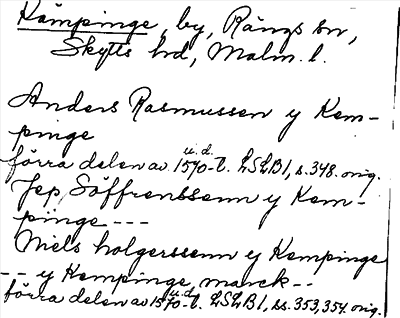 Kämpinge, by, Rängs sn,
Skytts hd, Malm. l.
Anders Rasmussen y Kem-
pinge
förra delen av 1570-t. LSLB1, s. 348. orig.
u. d.
Jep Söffrenssenn y Kem-
pinge ---
Niels holgerssenn y Kempinge
-- y Kempinge marck --
u. d.
förra delen av 1570-t. LSLB1, ss. 353, 354. orig.